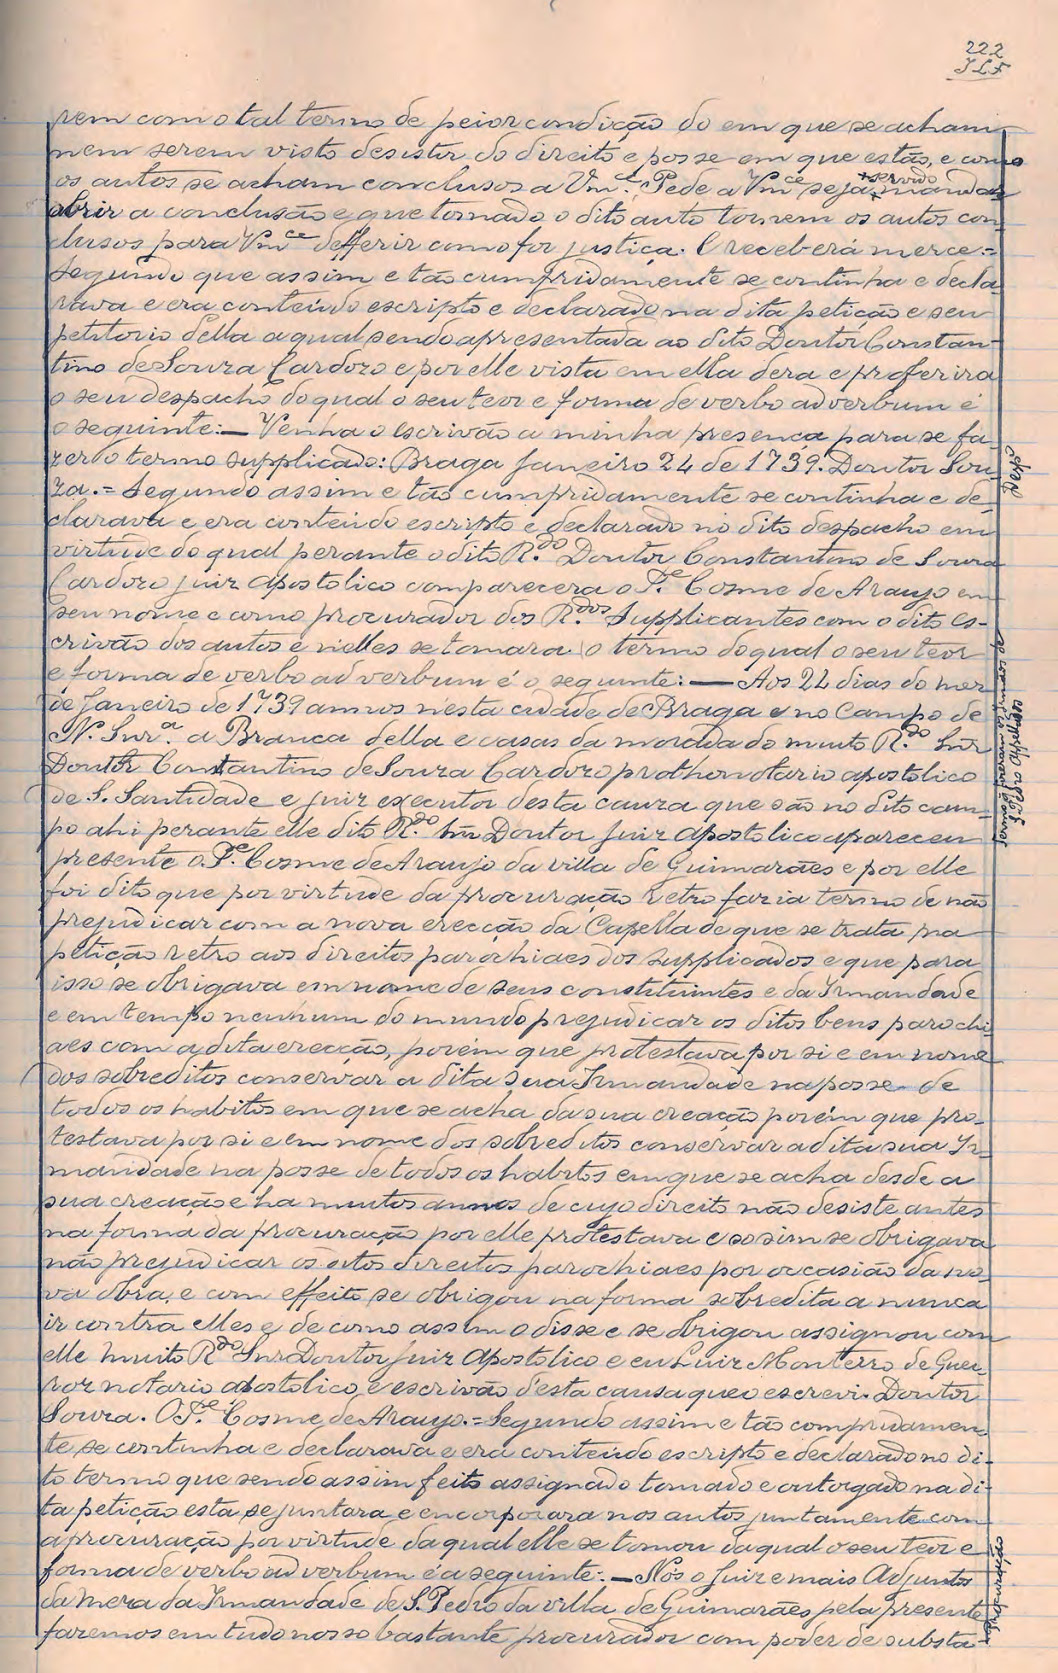 222
rem com o tal termo de peior condição do em que se acham
nem serem visto desistir do direito e posse em que estão, e como
os autos se acham conclusos a Vm.ce Pede a Vmce seja servido mandar
abrir a conclusão e que tornado o dito auto tornem os autos con-
clusos para Vmce defferir como for justiça. E receberá merce.=
Segundo que assim e tão cumpridamente se continha e decla-
rava e era conteúdo escripto e declarado na dita petição e seu
petitorio della a qual sendo apresentada ao dito Doutor Constan-
tino de Souza Cardozo e por elle vista em ella dera e proferira
o seu despacho do qual o seu teor e forma de verbo ad verbum é
o seguinte:— Venha o escrivão a minha presença para se fa-
zer o termo supplicado: Braga Janeiro 24 de 1739. Doutor Sou-
za.= Segundo assim e tão cumpridamente se continha e de-
clarava e era conteúdo escripto e declarado no dito despacho em
virtude do qual perante o dito R.do Doutor Constantino de Souza
Cardozo juiz apostolico comparecera o P.e Cosme de Araujo em
seu nome e como procurador dos R.dos Supplicantes com o dito es-
crivão dos autos e n'elles se tomara o termo do qual o seu teor
e forma de verbo ad verbum é o seguinte:— Aos 24 dias do mez
de Janeiro de 1739 annos n'esta cidade de Braga e no Campo de
N. Snr.a a Branca della e casas da morada do muito R.do Snr
Doutor Constantino de Souza Cardozo prothonotario apostolico
de S. Santidade e juiz executor desta causa que são no dito cam-
po ahi perante elle dito R.do Snr Doutor Juiz Apostolico apareceu
presente o P.e Cosme de Araujo da villa de Guimarães e por elle
foi dito que por virtude da procuração retro fazia termo de não
prejudicar com a nova erecção da Capella de que se trata na
petição retro aos direitos parochiaes dos supplicados e que para
isso se obrigava em nome de seus constituintes e da Irmandade
e em tempo nenhum do mundo prejudicar os ditos bens parochi-
aes com a dita erecção, porém que protestava por si e em nome
dos sobreditos conservar a dita sua Irmandade na posse de
todos os habitos em que se acha da sua creação porém que pro-
testava por si e em nome dos sobreditos conservar a dita sua Ir-
mandade na posse de todos os habitos em que se acha desde a
sua creação e ha muitos annos de cujo direito não desiste antes
na forma da procuração por elle protestava e assim se obrigava
não prejudicar os ditos direitos parochiaes por occasião da no-
va obra, e com effeito se obrigou na forma sobredita a nunca
ir contra elles e de como assim o disse e se obrigou assignou com
elle muito R.do Snr Doutor Juiz Apostolico e eu Luiz Monteiro de Quei-
roz notario apostolico e escrivão d'esta causa que o escrevi. Doutor
Souza. O P.e Cosme de Araujo.= Segundo assim e tão compridamen-
te se continha e declarava e era conteúdo escripto e declarado no di-
to termo que sendo assim feito assignado tomado e outorgado na di-
ta petição esta se juntara e encorporara nos autos juntamente com
a procuração por virtude da qual elle se tomou da qual o seu teor e
forma de verbo ad verbum é a seguinte:— Nós o Juiz e mais Adjuntos
da Meza da Irmandade de S. Pedro da villa de Guimarães pela presente
faremos em tudo nosso bastante procurador com poder de substa-
Desp.o
Termo q fizeram os Irmãos de
S. Pedro Appellidos
Procuração